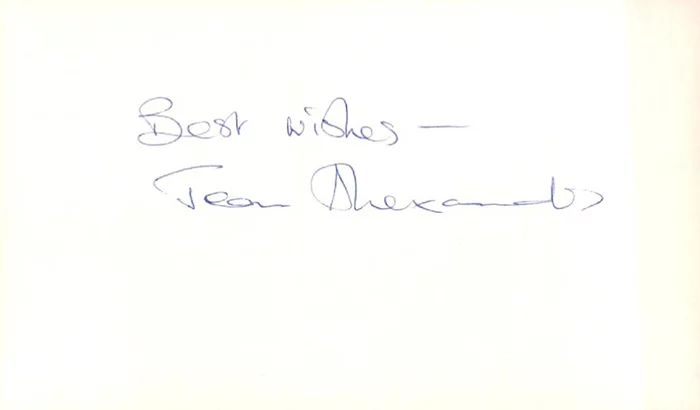 Best wishes —
Jean Alexander